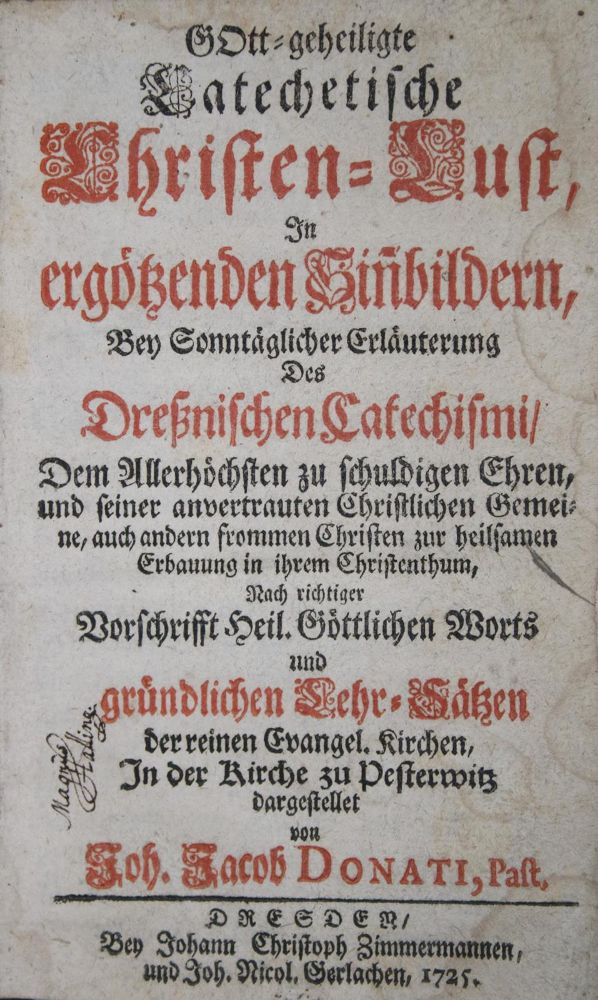 GOtt-geheiligte
Catechetische
Christen-Lust,
In
ergötzenden Sin̄bildern,
Bey Sonntäglicher Erläuterung
Des
Dreßnischen Catechismi/
Dem Allerhöchsten zu schuldigen Ehren,
und seiner anvertrauten Christlichen Gemei-
ne, auch andern frommen Christen zur heilsamen
Erbauung in ihrem Christenthum,
Nach richtiger
Vorschrifft Heil. Göttlichen Worts
und
gründlichen Lehr-Sätzen
der reinen Evangel. Kirchen,
In der Kirche zu Pesterwitz
dargestellet
von
Joh. Jacob DONATI, Past.
DRESDEN/
Bey Johann Christoph Zimmermannen,
und Joh. Nicol. Gerlachen, 1725.
Magnus